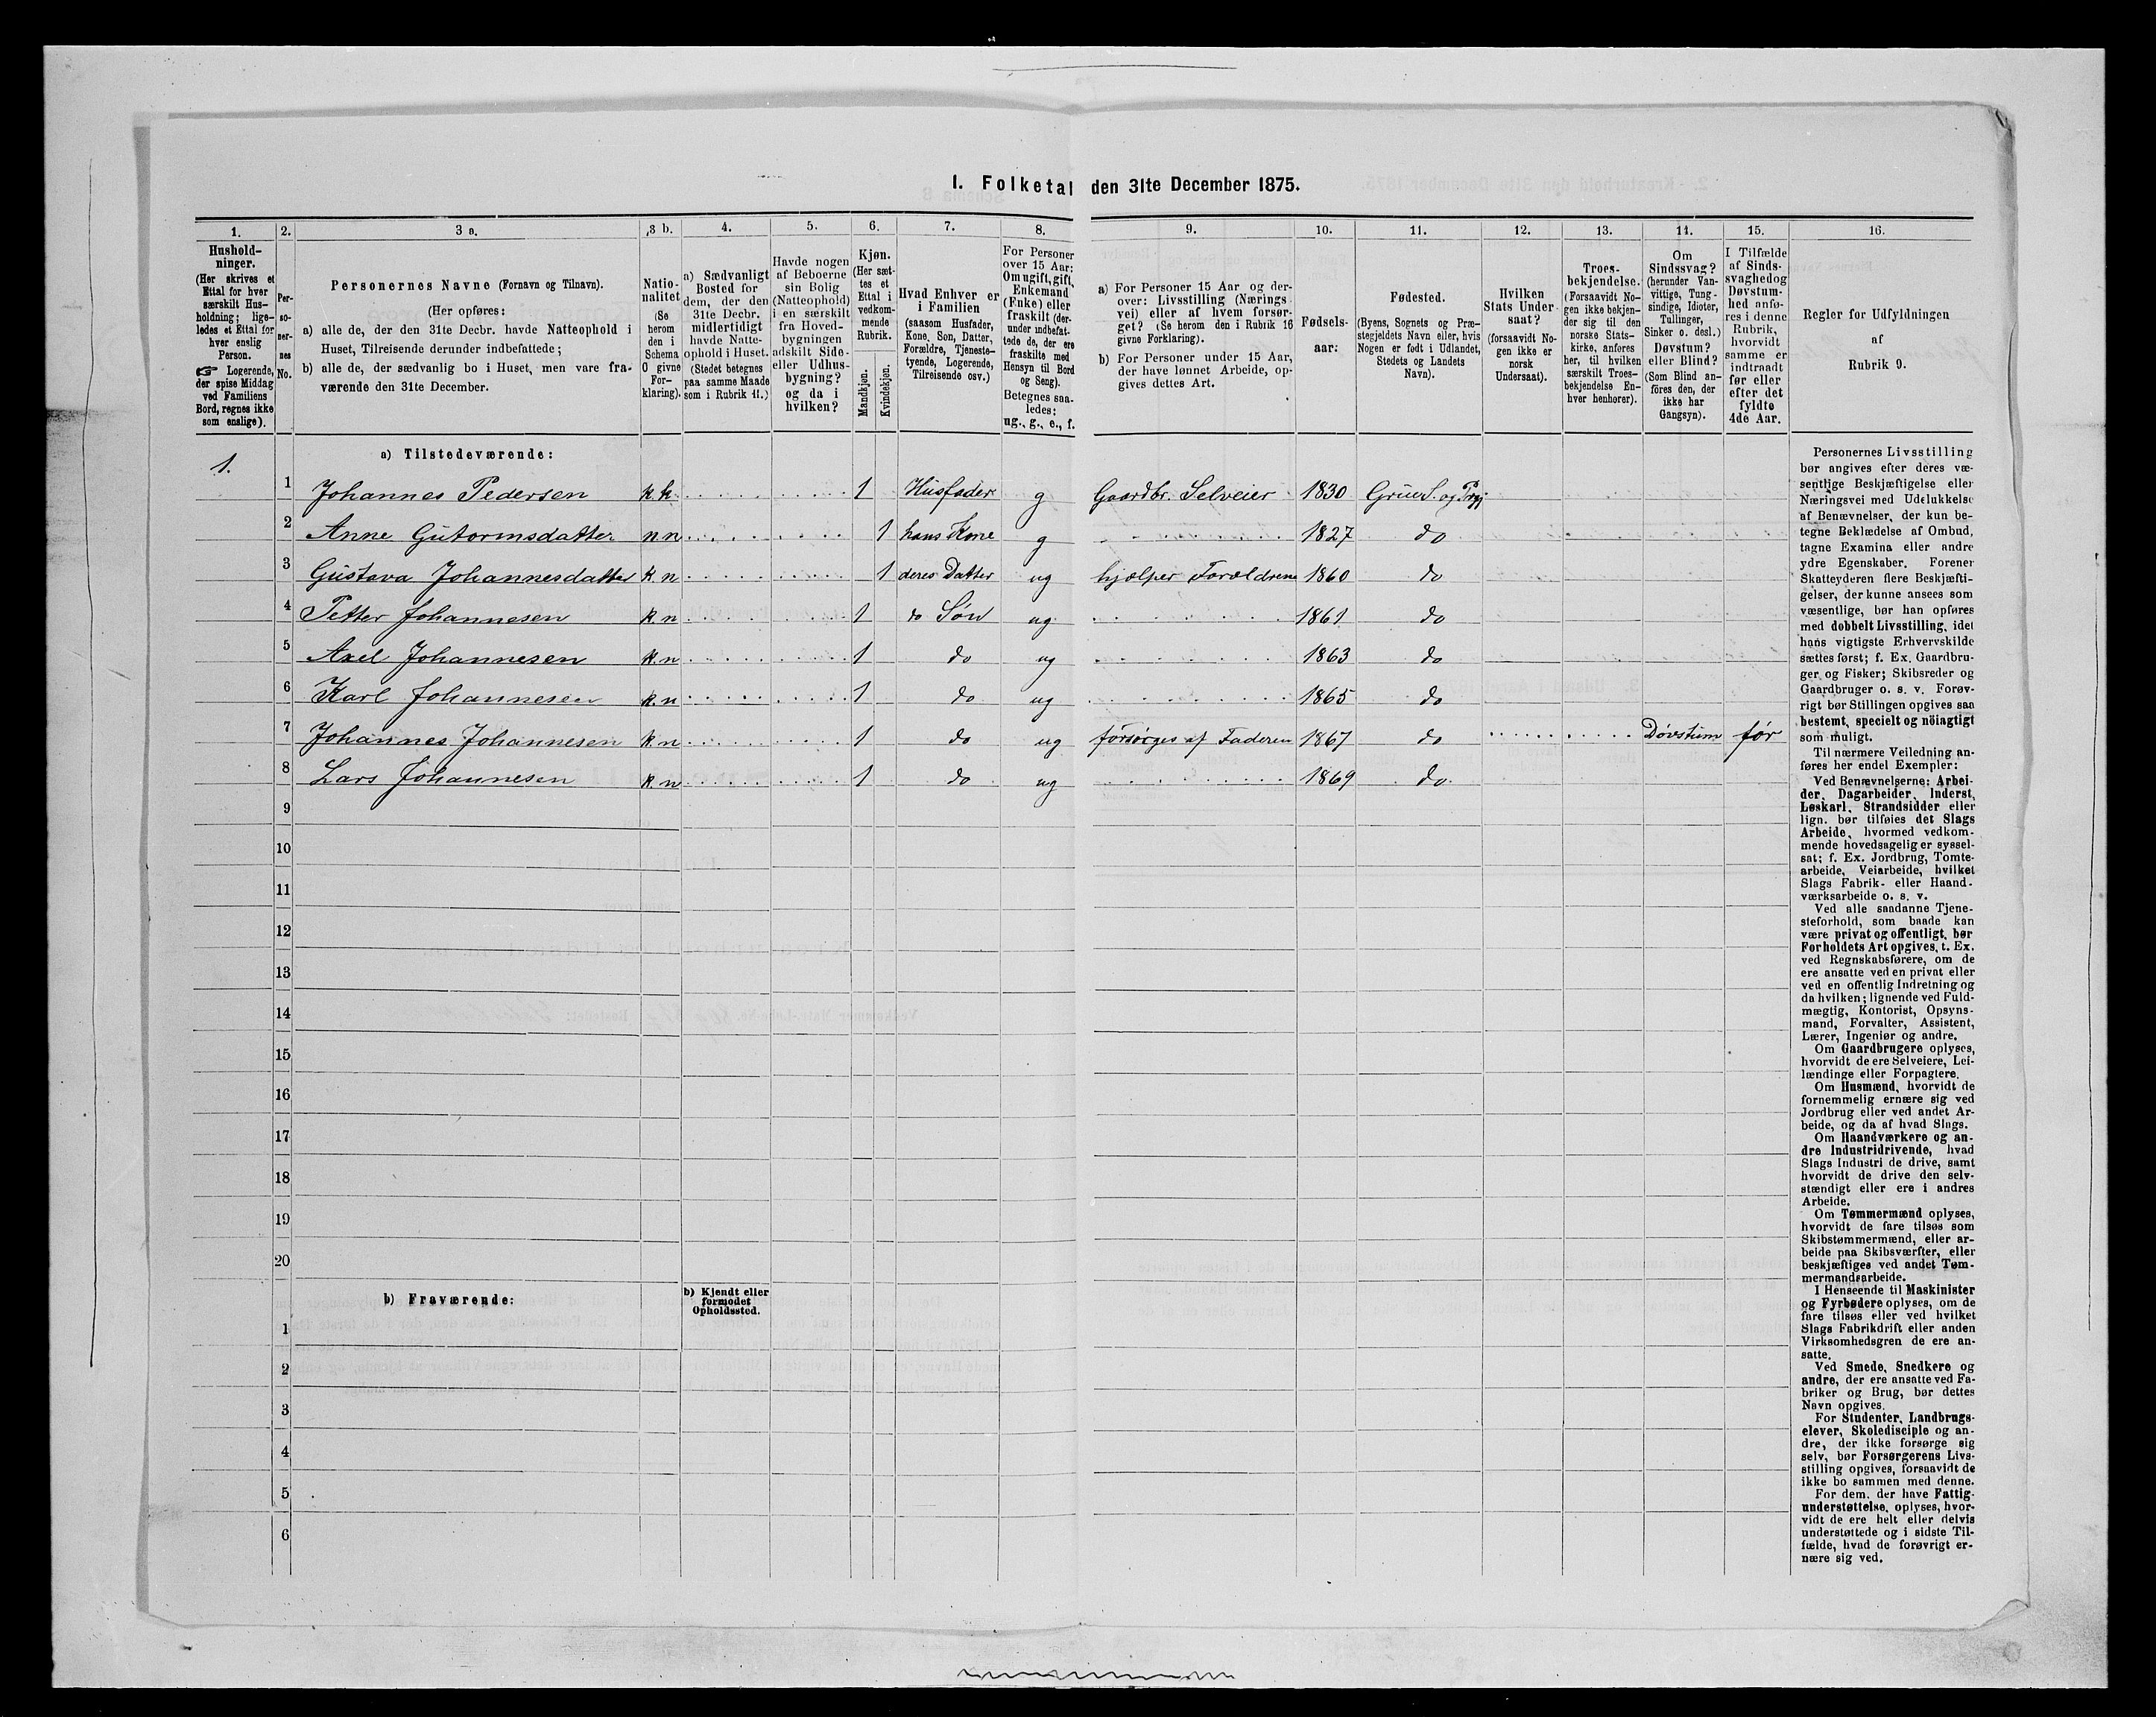 I. Folketal den 31te December 1875.
1. 2. 3 a. 3 b. 4. 5. 6. 7. 8. 9. 10. 11. 12. 13. 14. 15. 16.
Hushold-
ninger.
(Her skrives et
Ettal for hver
særskilt Hus-
holdning; lige-
ledes et Ettal for
hver enslig
Person.
☞ Logerende,
der spise Middag
ved Familiens
Bord, regnes ikke
som enslige).
Per-
so-
ner-
nes
No.
Personernes Navne (Fornavn og Tilnavn).
(Her opføres:
a) alle de, der den 31te Decbr. havde Natteophold i
Huset, Tilreisende derunder indbefattede;
b) alle de, der sædvanlig bo i Huset, men vare fra-
værende den 31te December.
Natio-
nalitet
(Se
herom
den i
Schema
O givne
For-
klaring).
a) Sædvanligt
Bosted for
dem, der den
31te Decbr.
midlertidigt
havde Natte-
ophold i Huset.
(Stedet betegnes
paa samme Maade
som i Rubrik 11.)
Havde nogen
af Beboerne
sin Bolig
(Natteophold)
i en særskilt
fra Hoved-
bygningen
adskilt Side-
eller Udhus-
bygning?
og da i
hvilken?
Kjøn.
(Her sæt-
tes et
Ettal i
vedkom-
mende
Rubrik.
Mandkjøn.
Kvindekjøn.
Hvad Enhver er
i Familien
(saasom Husfader,
Kone, Søn, Datter,
Forældre, Tjeneste-
tyende, Logerende,
Tilreisende osv.)
For Personer
over 15 Aar:
Om ugift, gift,
Enkemand
(Enke) eller
fraskilt (der-
under indbefat-
tede de, der ere
fraskilte med
Hensyn til Bord
og Seng).
Betegnes saa-
ledes:
ug., g., e., f.
a) For Personer 15 Aar og der-
over: Livsstilling (Nærings
vei) eller af hvem forsør-
get? (Se herom den i Rubrik 16
givne Forklaring).
b) For Personer under 15 Aar,
der have lønnet Arbeide, op-
gives dettes Art.
Fødsels-
aar:
Fødested.
(Byens, Sognets og Præ-
stegjeldets Navn eller, hvis
Nogen er født i Udlandet,
Stedets og Landets
Navn).
Hvilken
Stats Under-
saat?
(forsaavidt No-
gen ikke er
norsk
Undersaat).
Troes-
bekjendelse.
(Forsaavidt No-
gen ikke bekjen-
der sig til den
norske Stats-
kirke, anføres
her, til hvilken
særskilt Troes-
bekjendelse En-
hver henhører).
Om
Sindssvag?
(herunder Van-
vittige, Tung-
sindige, Idioter,
Tullinger,
Sinker o. desl.)
Døvstum?
eller Blind?
(Som Blind an-
føres den, der
ikke har
Gangsyn).
I Tilfælde
af Sinds-
svaghed og
Døvstum-
hed anfø-
res i denne
Rubrik,
hvorvidt
samme er
indtraadt
før eller
efter det
fyldte
4de Aar.
Regler for Udfyldningen
af
Rubrik 9.
1.
a) Tilstedeværende:
1 Johannes Pedersen k.k. 1 Husfader g Gaardbr. Selveier 1830 Grue S. og Prgj.
2 Anne Gutormsdatter n n 1 hans Kone g 1827 do
3 Gustava Johannesdatter k n 1 deres Datter ug hjælper Forældrene 1860 do
4 Petter Johannesen k n 1 do Søn ug 1861 do
5 Axel Johannesen k. n 1 do ug 1863 do
6 Karl Johannesen k. n 1 do ug 1865 do
7 Johannes Johannesen k. n 1 do ug forsørges af Faderen 1867 do Døvstum før
8 Lars Johannesen k. n 1 do ug 1869 do
9
10
11
12
13
14
15
16
17
18
19
20
b) Fraværende:
b) Kjendt eller
formodet
Opholdssted.
1
2
3
4
5
6
Personernes Livsstilling
bør angives efter deres væ-
sentlige Beskjæftigelse eller
Næringsvei med Udelukkelse
af Benævnelser, der kun be-
tegne Beklædelse af Ombud,
tagne Examina eller andre
ydre Egenskaber. Forener
Skatteyderen flere Beskjæfti-
gelser, der kunne ansees som
væsentlige, bør han opføres
med dobbelt Livsstilling, idet
hans vigtigste Erhvervskilde
sættes først; f. Ex. Gaardbru-
ger og Fisker; Skibsreder og
Gaardbruger o. s. v. Forøv-
rigt bør Stillingen opgives saa
bestemt, specielt og nöiagtigt
som muligt.
Til nærmere Veiledning an-
føres her endel Exempler:
Ved Benævnelserne: Arbei-
der, Dagarbeider, Inderst,
Løskarl, Strandsidder eller
lign. bør tilføies det Slags
Arbeide, hvormed vedkom-
mende hovedsagelig er syssel-
sat; f. Ex. Jordbrug, Tomte-
arbeide, Veiarbeide, hvilket
Slags Fabrik- eller Haand-
værksarbeide o. s. v.
Ved alle saadanne Tjene-
steforhold, som baade kan
være privat og offentligt, bør
Forholdets Art opgives, t. Ex.
ved Regnskabsførere, om de
ere ansatte ved en privat eller
ved en offentlig Indretning og
da hvilken; lignende ved Fuld-
mægtig, Kontorist, Opsyns-
mand, Forvalter, Assistent,
Lærer, Ingeniør og andre.
Om Gaardbrugere oplyses,
hvorvidt de ere Selveiere, Lei-
lændinge eller Forpagtere.
Om Husmænd, hvorvidt de
fornemmelig ernære sig ved
Jordbrug eller ved andet Ar-
beide, og da af hvad Slags.
Om Haandværkere og an-
dre Industridrivende, hvad
Slags Industri de drive, samt
hvorvidt de drive den selv-
stændigt eller ere i andres
Arbeide.
Om Tømmermænd oplyses,
hvorvidt de fare tilsøs som
Skibstømmermænd, eller ar-
beide paa Skibsværfter, eller
beskjæftiges ved andet Tøm-
mermandsarbeide.
I Henseende til Maskinister
og Fyrbødere oplyses, om de
fare tilsøs eller ved hvilket
Slags Fabrikdrift eller anden
Virksomhedsgren de ere an-
satte.
Ved Smede, Snedkere og
andre, der ere ansatte ved Fa-
briker og Brug, bør dettes
Navn opgives.
For Studenter, Landbrugs-
elever, Skoledisciple og an-
dre, der ikke forsørge sig
selv, bør Forsørgerens Livs-
stilling opgives, forsaavidt de
ikke bo sammen med denne.
For dem, der have Fattig-
understøttelse, oplyses, hvor-
vidt de ere helt eller delvis
understøttede og i sidste Til-
fælde, hvad de forøvrigt er-
nære sig ved.